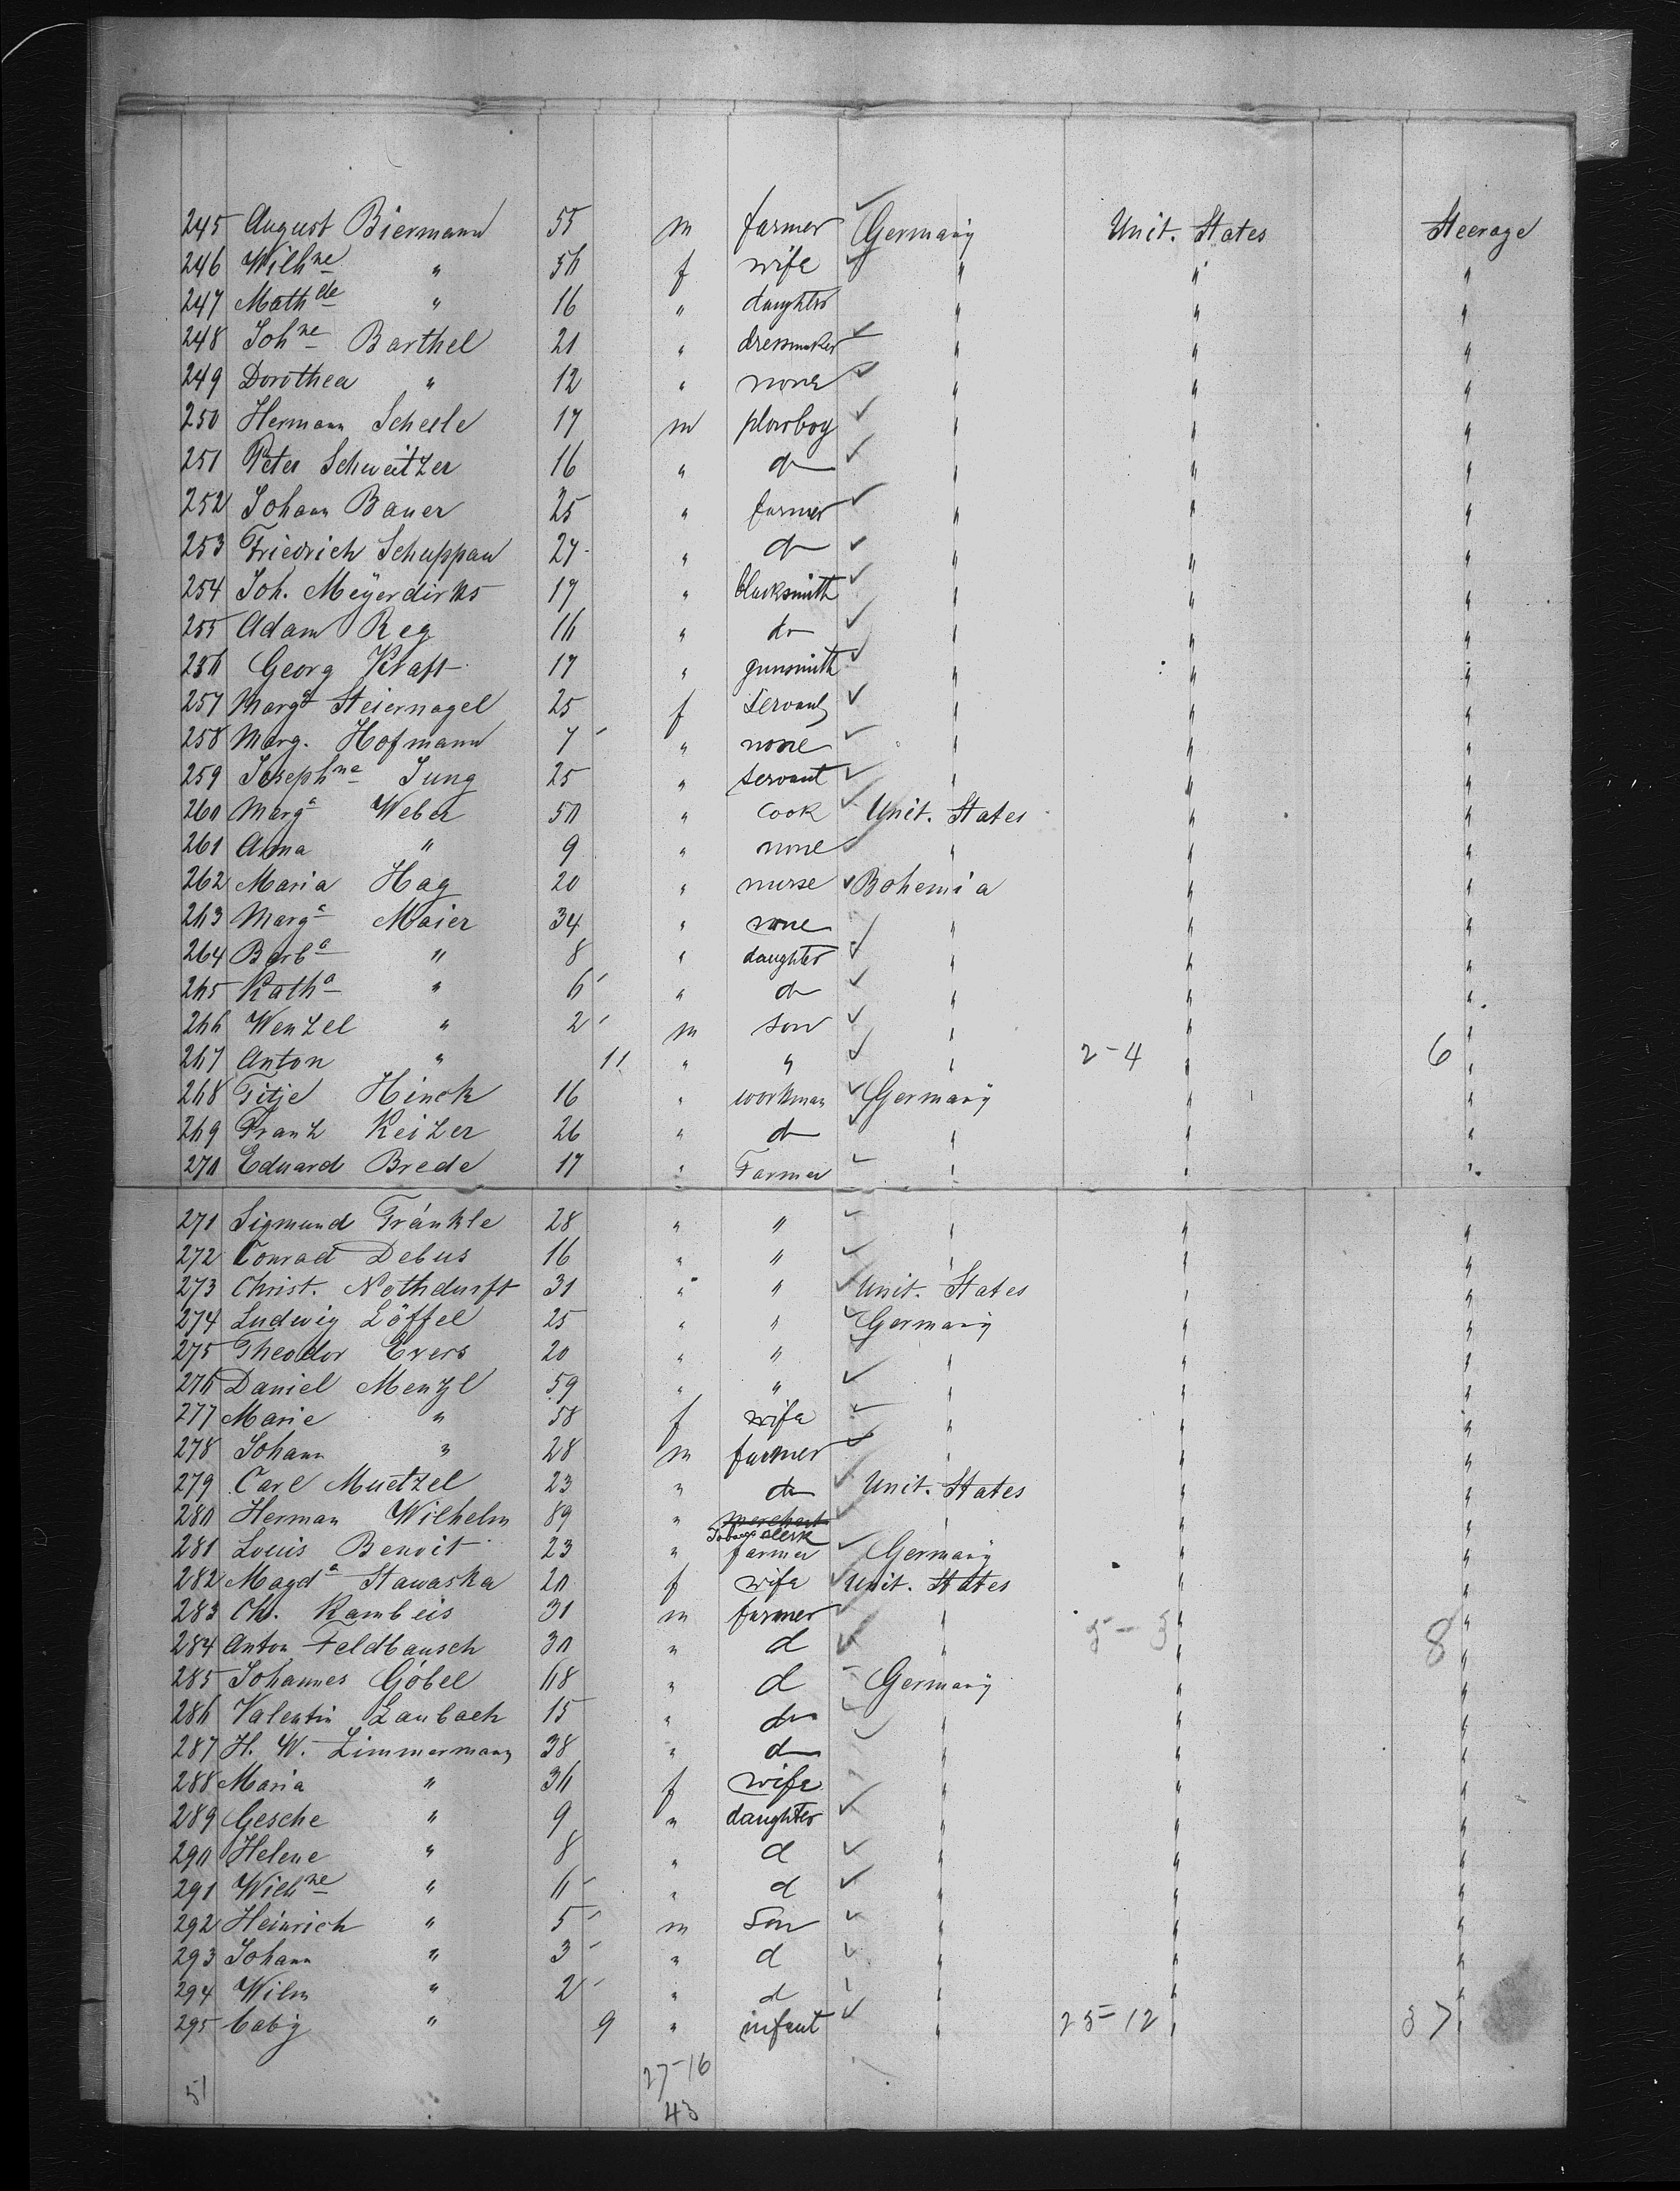 245 August Biermann 55 m farmer Germany Unit. States Steerage
246 Wilhne " 56 f wife " " "
247 Mathde " 16 " daughter " " "
248 Johne Barthel 21 " dressmaker " " "
249 Dorothea " 12 " none " " "
250 Hermann Scheele 17 m plowboy " " "
251 Peter Schweitzer 16 " do " " "
252 Johann Bauer 25 " farmer " " "
253 Friedrich Schuppan 27 " do " " "
254 Joh. Meyerdirks 17 " blacksmith " " "
255 Adam Reg 16 " do " " "
256 Georg Kraft 17 " gunsmith " " "
257 Margt Steiernagel 25 f Servant " " "
258 Marg. Hofmann 7 " none " " "
259 Josephne Jung 25 " servant " " "
260 Marga Weber 50 " cook Unit. States " "
261 Anna " 9 " none " " "
262 Maria Hag 20 " nurse Bohemia " "
263 Marga Maier 34 " none " " "
264 Barba " 8 " daughter " " "
265 Katha " 6 " do " " "
266 Wenzel " 2 m son " " "
267 Anton " 11 " " " 2-4 " 6 "
268 Titje Hinck 16 " workman Germany " "
269 Franz Keizer 26 " do " " "
270 Eduard Brede 17 " Farmer " " "
271 Sigmund Fränkle 28 " " " " "
272 Conrad Debus 16 " " " " "
273 Christ. Nothdurft 31 " " Unit. States " "
274 Ludwig Löffel 25 " " Germany " "
275 Theodor Evers 20 " " " " "
276 Daniel Menzl 59 " " " " "
277 Marie " 58 f wife " " "
278 Johann " 28 m farmer " " "
279 Carl Muetzel 23 " do Unit. States " "
280 Herman Wilhelm 89 " merchant " " "
clerk
281 Louis Benoit 23 " farmer Germany " "
282 Magda Stawaska 20 f wife Unit. States " "
283 Ch. Rambeis 31 m farmer " " "
284 Anton Feldbausch 30 " d " 5-3 " 8 "
285 Johannes Göbel 68 " d Germany " "
286 Valentin Laubach 15 " do " " "
287 H. W. Zimmermann 38 " do " " "
288 Maria " 36 f wife " " "
289 Gesche " 9 " daughter " " "
290 Helene " 8 " d " " "
291 Wilhne " 6 " d " " "
292 Heinrich " 5 m Son " " "
293 Johann " 3 " d " " "
294 Wilm " 2 " d " " "
295 baby " 9 " infant " 25-12 " 37 "
51 27-16
43